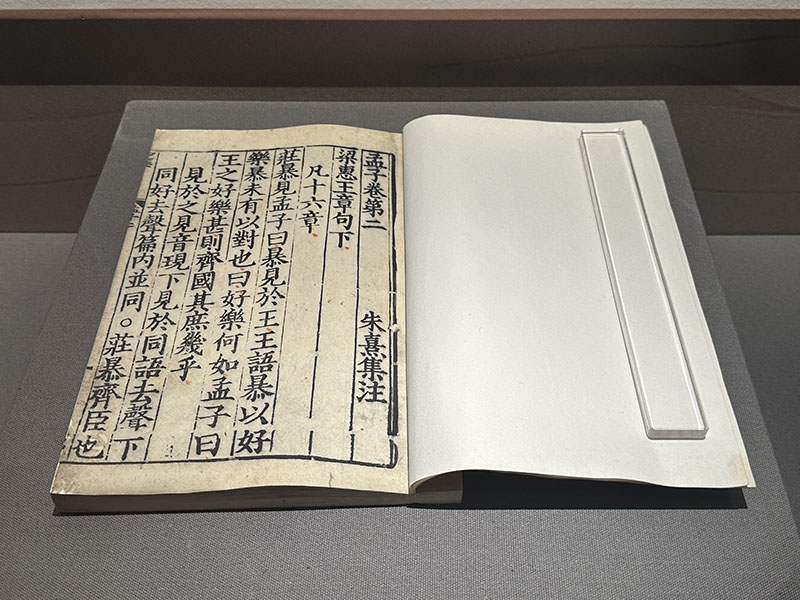 孟子卷第二
朱熹集注
梁惠王章句下
凡十六章
莊暴見孟子曰暴見於王王語暴以好
樂暴未有以對也曰好樂何如孟子曰
王之好樂甚則齊國其庶幾乎
見於之見音現下見於同語去聲下
同好去聲篇内並同○莊暴齊臣也